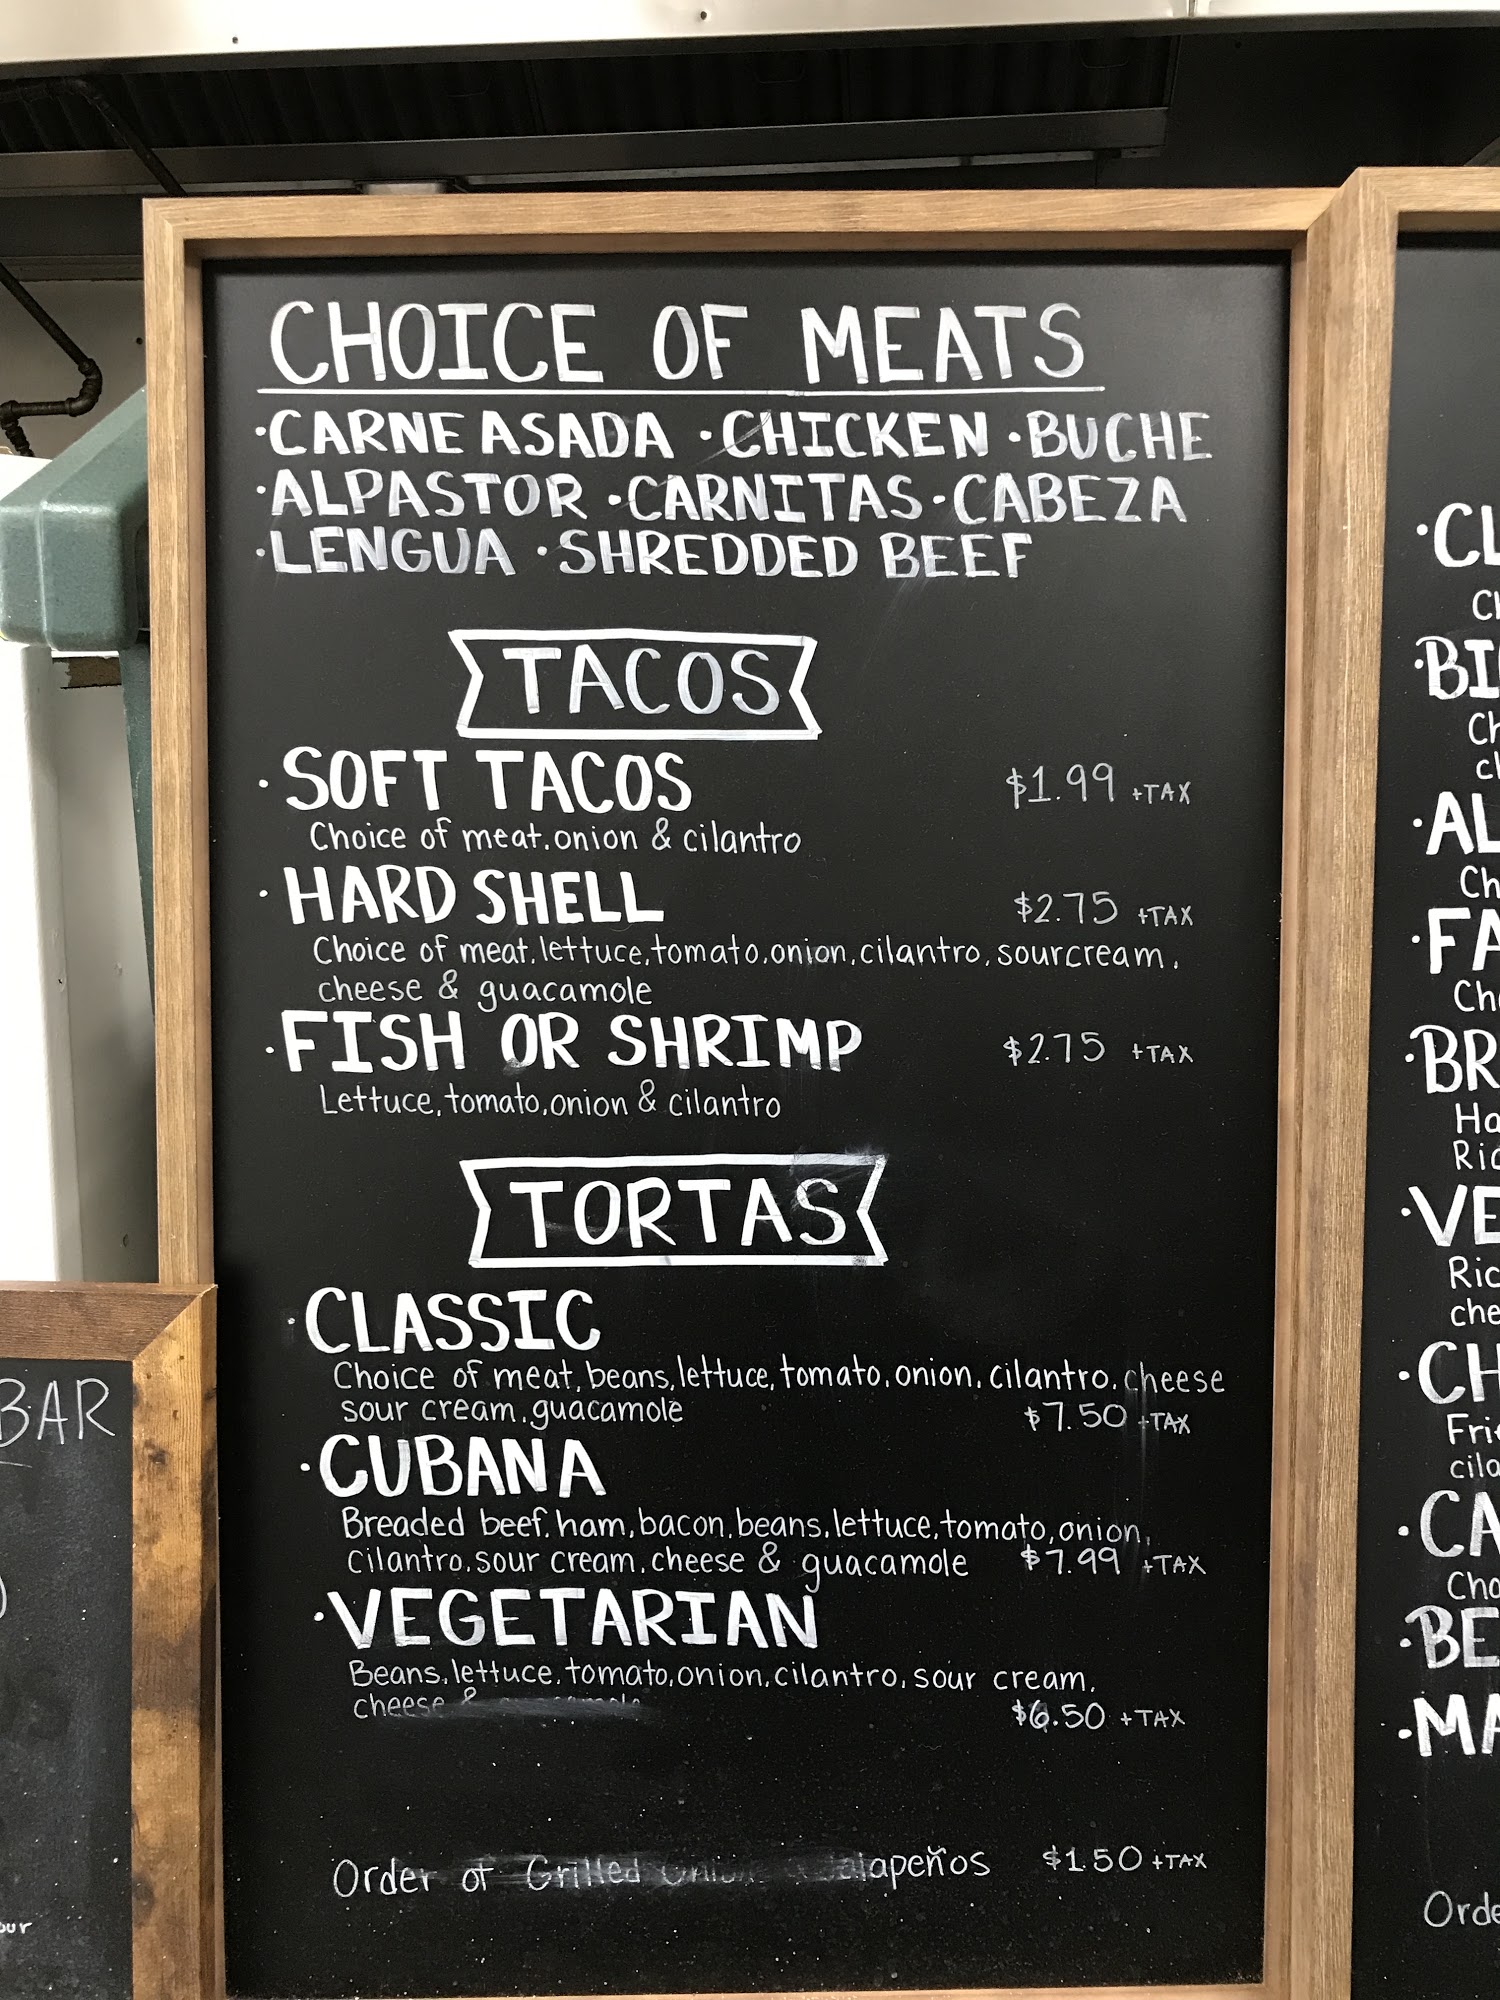 CHOICE OF MEATS
·CARNE ASADA ·CHICKEN ·BUCHE
·ALPASTOR ·CARNITAS ·CABEZA
·LENGUA ·SHREDDED BEEF
TACOS
·SOFT TACOS $1.99 +TAX
Choice of meat, onion & cilantro
·HARD SHELL $2.75 +TAX
Choice of meat, lettuce, tomato, onion, cilantro, sourcream,
cheese & guacamole
·FISH OR SHRIMP $2.75 +TAX
Lettuce, tomato, onion & cilantro
TORTAS
·CLASSIC
Choice of meat, beans, lettuce, tomato, onion, cilantro, cheese
sour cream, guacamole $7.50 +TAX
·CUBANA
Breaded beef, ham, bacon, beans, lettuce, tomato, onion,
cilantro, sour cream, cheese & guacamole $7.99 +TAX
·VEGETARIAN
Beans, lettuce, tomato, onion, cilantro, sour cream,
cheese & $6.50 +TAX
Order of Grilled Jalapeños $1.50 +TAX
BAR
our
·CL
Ch
·BI
Ch
ch
·AL
Ch
·FA
Cho
·BR
Ha
Ric
·VE
Ric
che
·CH
Frie
cila
·CA
Cho
·BE
·MA
Orde